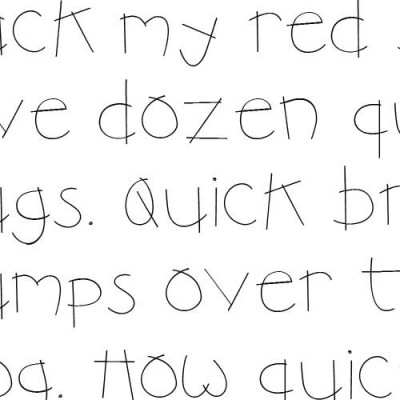 ack my red
ve dozen qu
ugs. Quick br
umps over t
og. How quic